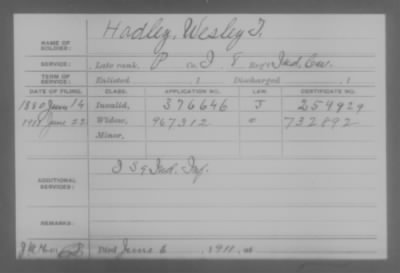 NAME OF SOLDIER: Hadley, Wesley T.
SERVICE: Late rank, P Co. I, 8 Reg't Ind. Cav.
TERM OF SERVICE: Enlisted , 1 Discharged , 1
DATE OF FILING. CLASS. APPLICATION NO. LAW. CERTIFICATE NO.
1880 June 14 Invalid, 376646 J 254929
June 22 Widow, 967312 " 732892
Minor,
ADDITIONAL SERVICES: I 39 Ind. Inf.
REMARKS:
Died June 6, 1911, at